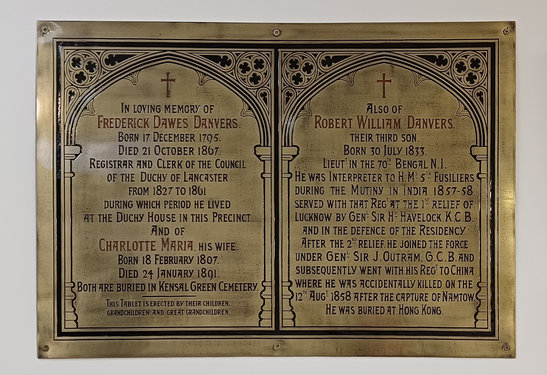 In loving memory of
Frederick Dawes Danvers.
Born 17 December 1795.
Died 21 October 1867.
Registrar and Clerk of the Council
of the Duchy of Lancaster
from 1827 to 1861
during which period he lived
at the Duchy House in this Precinct.
And of
Charlotte Maria, his wife.
Born 18 February 1807.
Died 24 January 1891.
Both are buried in Kensal Green Cemetery.
This Tablet is erected by their children,
grandchildren and great grandchildren.
Also of
Robert William Danvers,
their third son.
Born 30 July 1833.
Lieut. in the 70th Bengal N.I.
He was Interpreter to H.M's 5th Fusiliers
during the Mutiny in India 1857-58,
served with that Regt at the 1st relief of
Lucknow by Genl. Sir Hy. Havelock K.C.B.
and in the defence of the Residency.
After the 2nd relief he joined the force
under Genl. Sir J. Outram, G.C.B. and
subsequently went with his Regt to China
where he was accidentally killed on the
12th Augt 1858 after the capture of Namtow.
He was buried at Hong Kong.